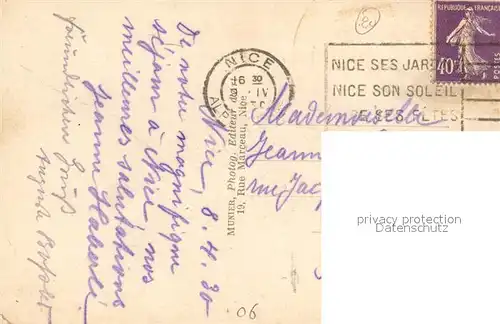 Nice, 8.4.30
De notre magnifique
séjour à Nice, nos
meilleures salutations
Jeanne Haberlé
freundlichen Gruß
Augusta
MUNIER, Photog. Editeur
19, Rue Marceau, Nice
NICE
16 30
IV
NICE SES JAR
NICE SON SOLEIL
SES FÊTES
REPUBLIQUE FRANÇAISE
40c
POSTES
Mademoiselle
Jeann
rue Jac
privacy protection
verwendet
06